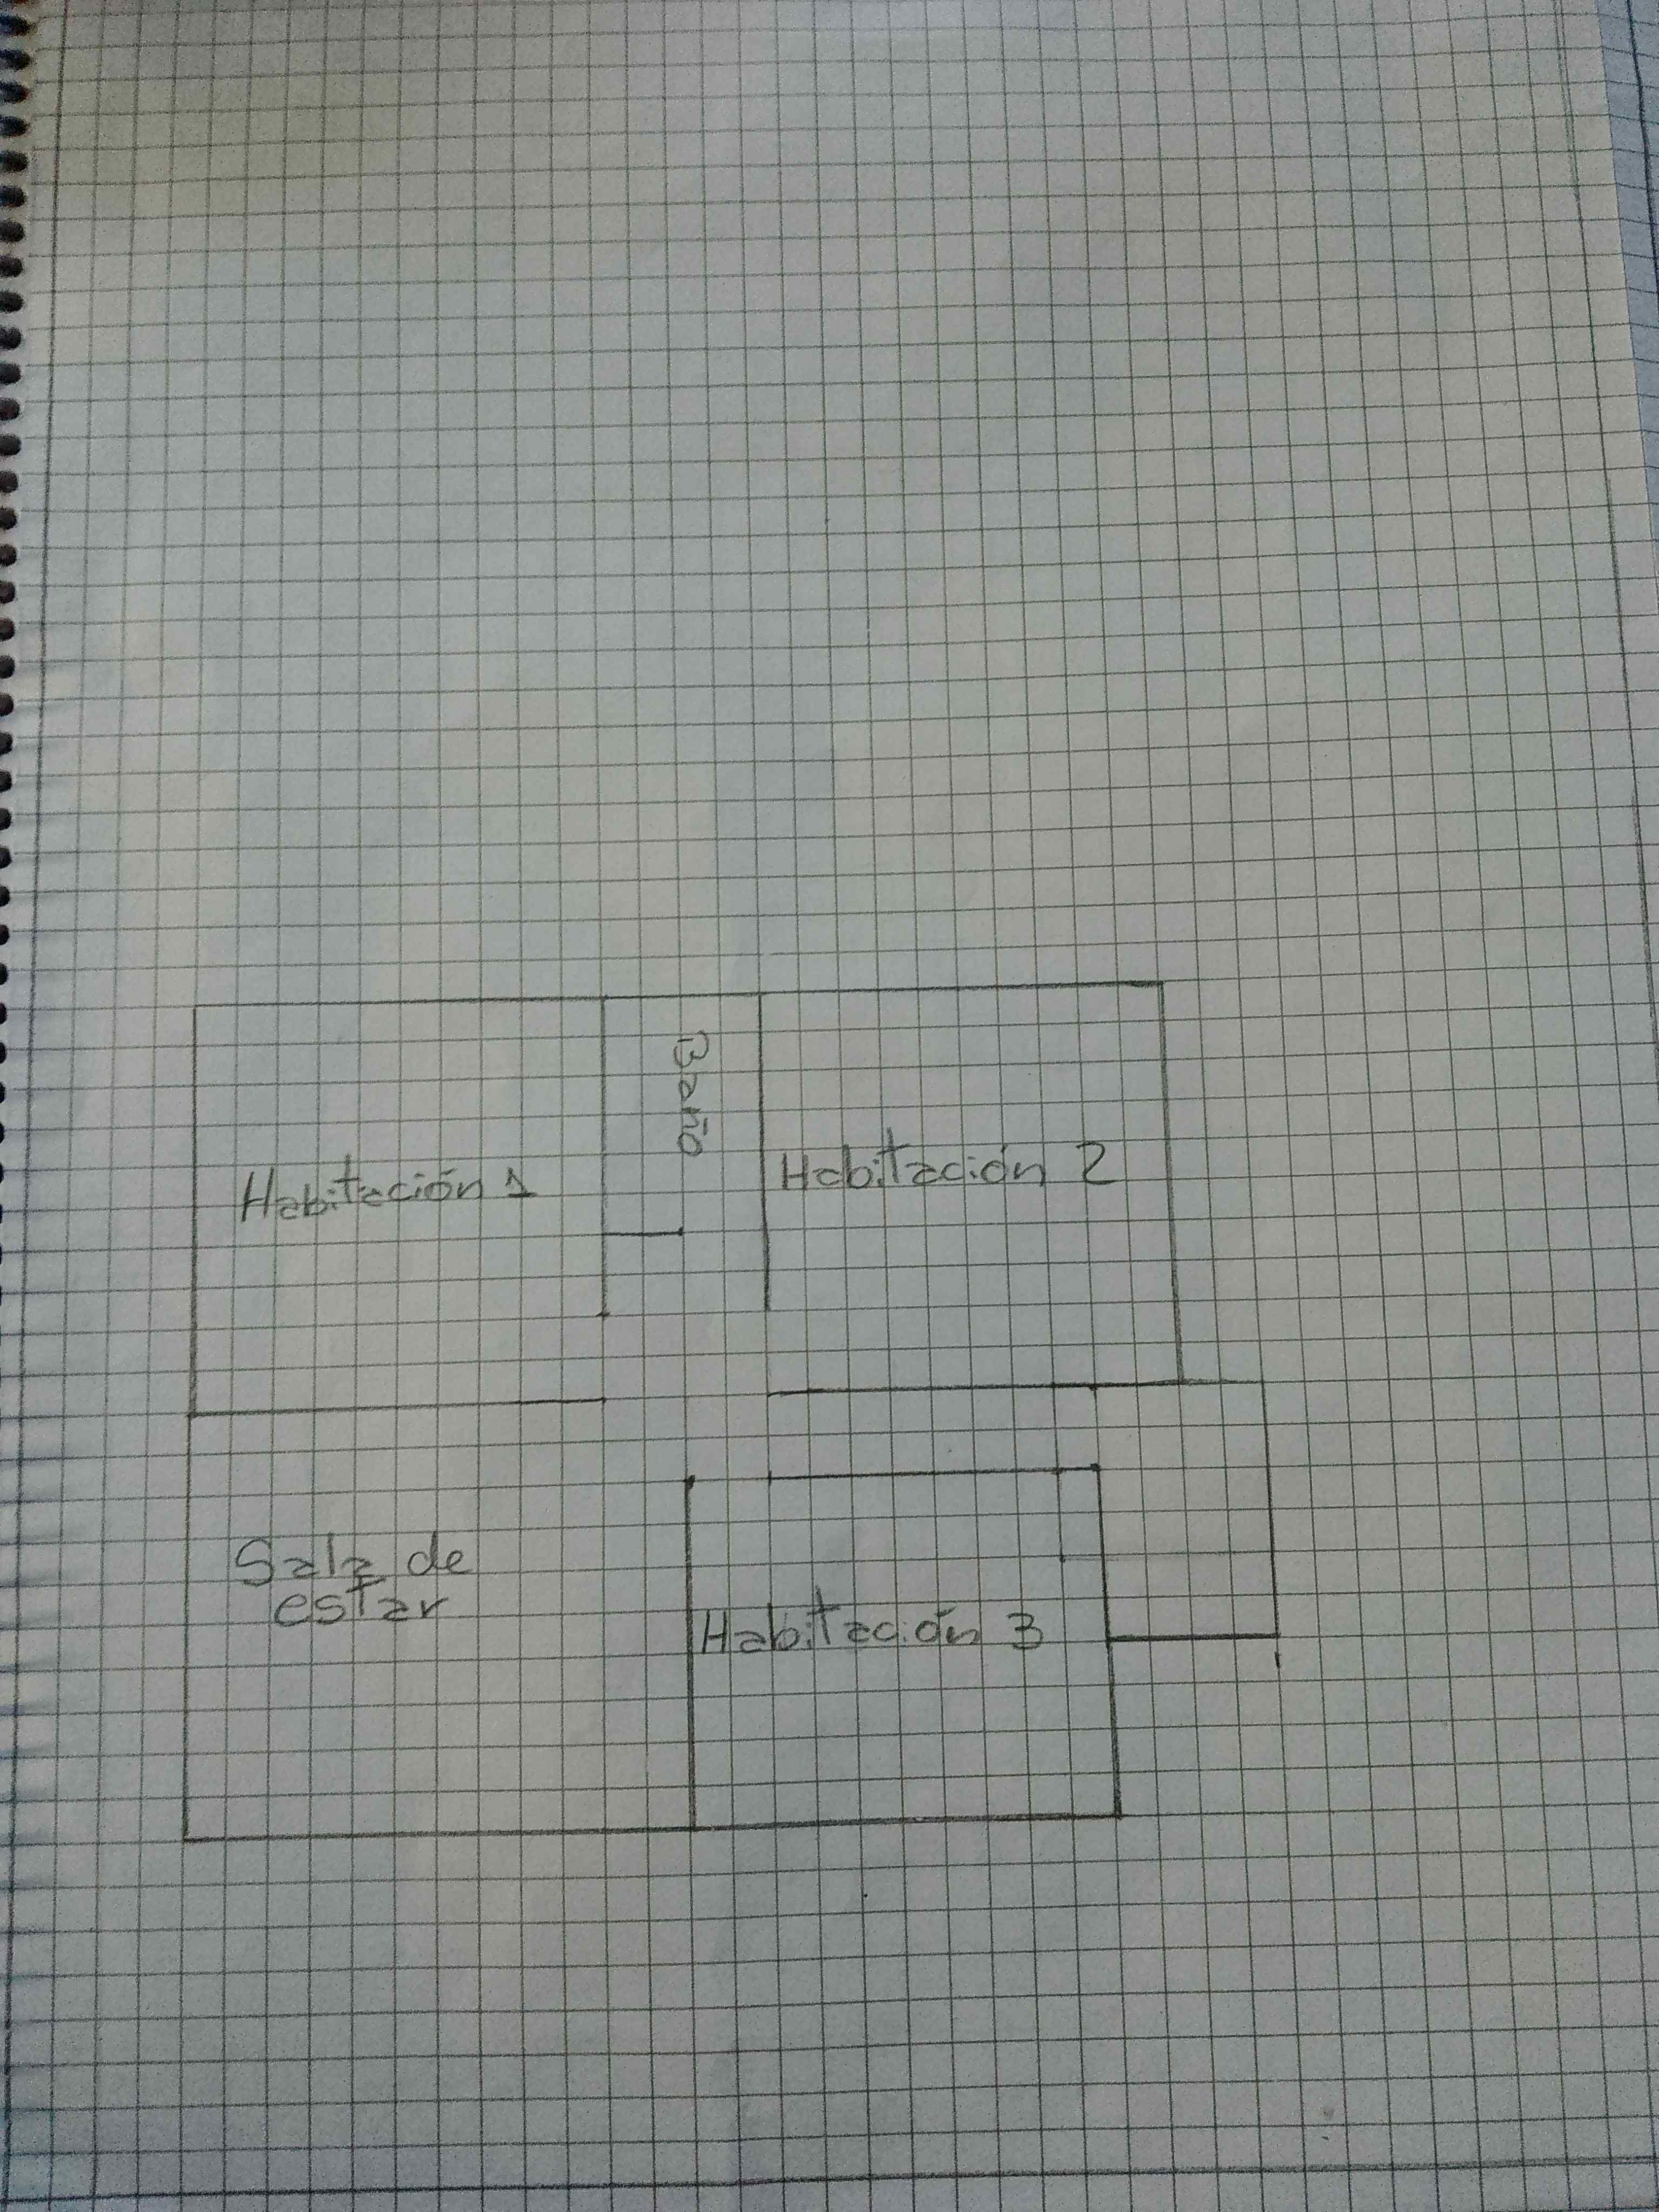 Baño
Habitación 1
Habitación 2
Sala de
estar
Habitación 3